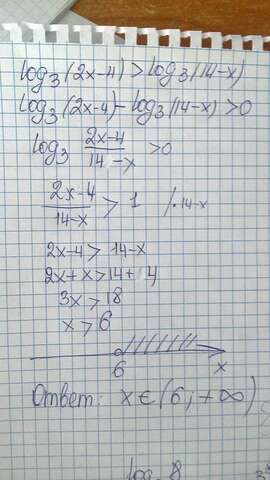 log₃(2x-4)>log₃(14-x)
log₃(2x-4)-log₃(14-x)>0
log₃ (2x-4)/(14-x) >0
(2x-4)/(14-x) > 1 /·14-x
2x-4> 14-x
2x+x>14+4
3x>18
x>6
6 x
Ответ: x∈(6;+∞)
log 8